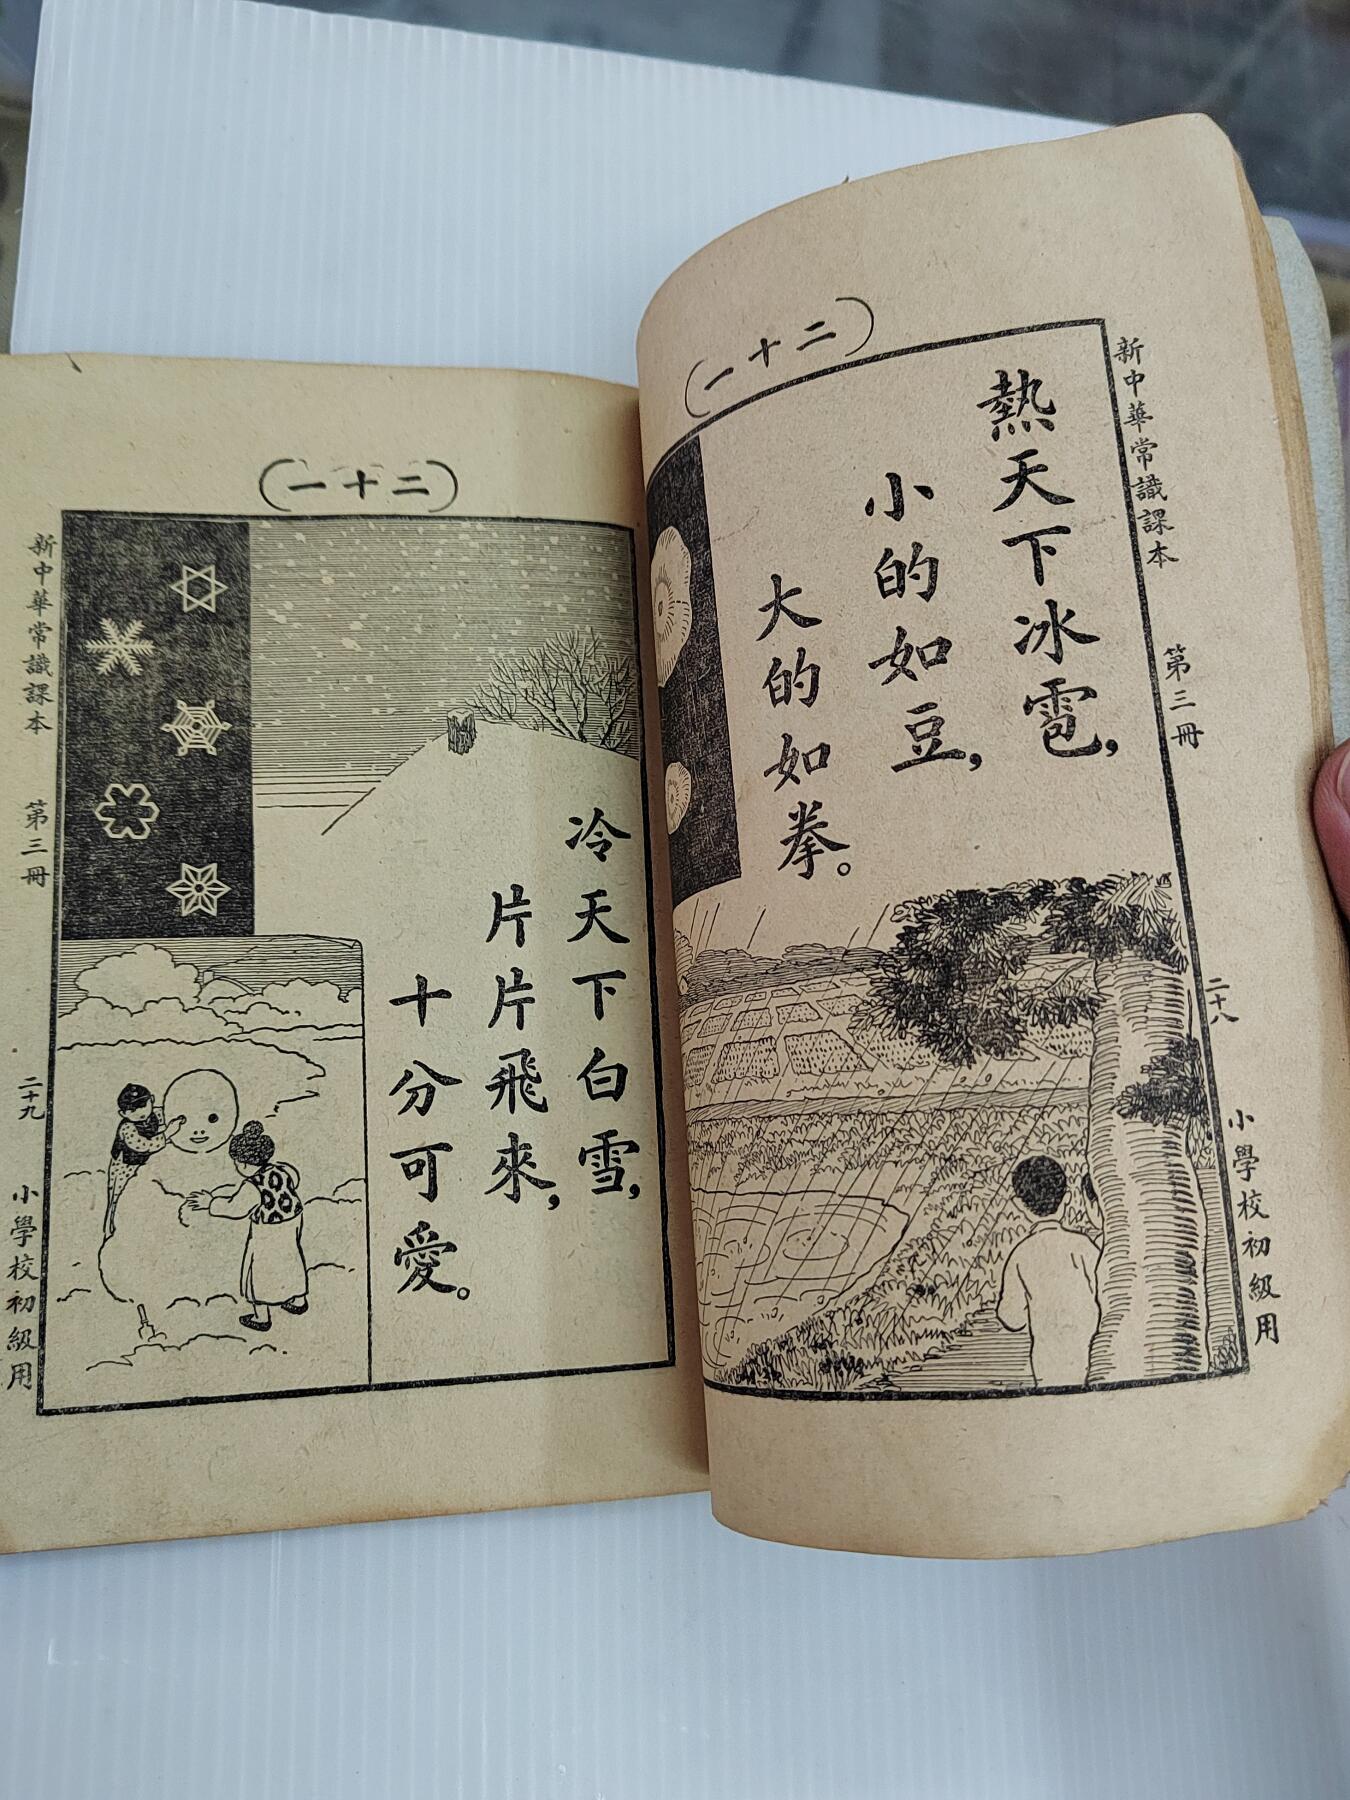 新中華常識課本 第三冊 二十八 小學校初級用
（二十一）
熱天下冰雹，
小的如豆，
大的如拳。
（二十一）
冷天下白雪，
片片飛來，
十分可愛。
新中華常識課本 第三冊 二十九 小學校初級用